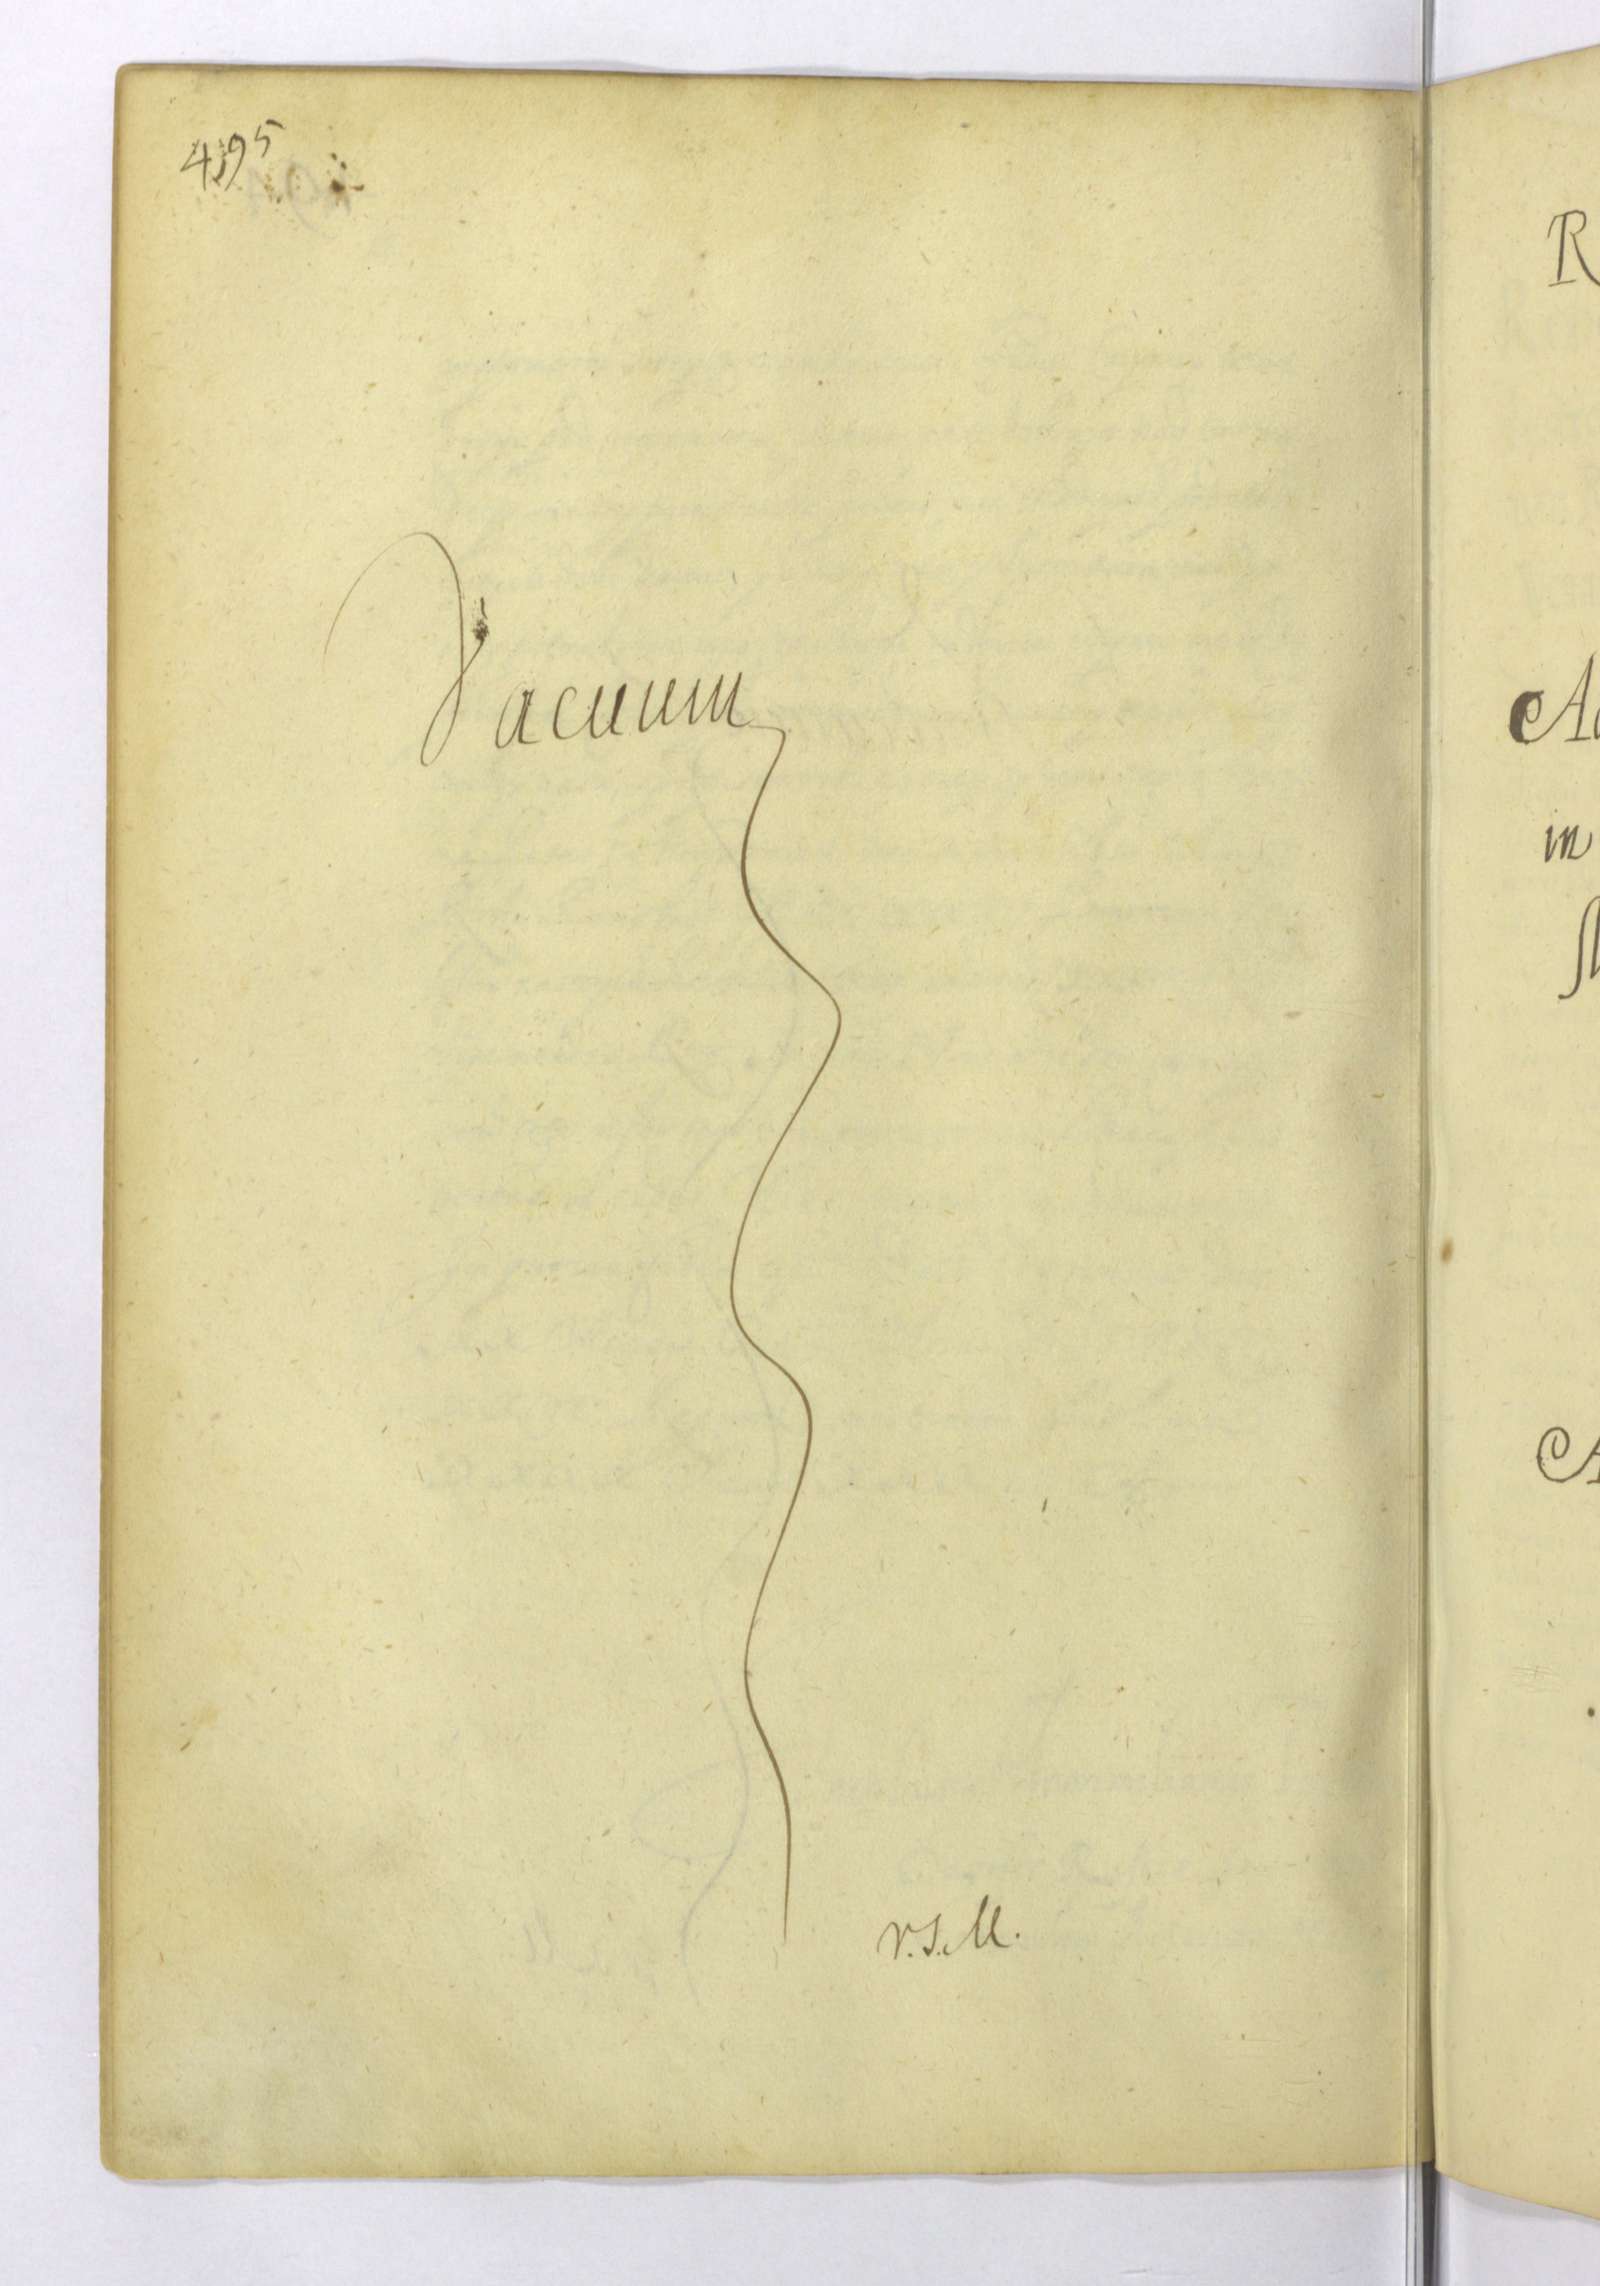 495
Vacuum
v.s.M.
R
in
A